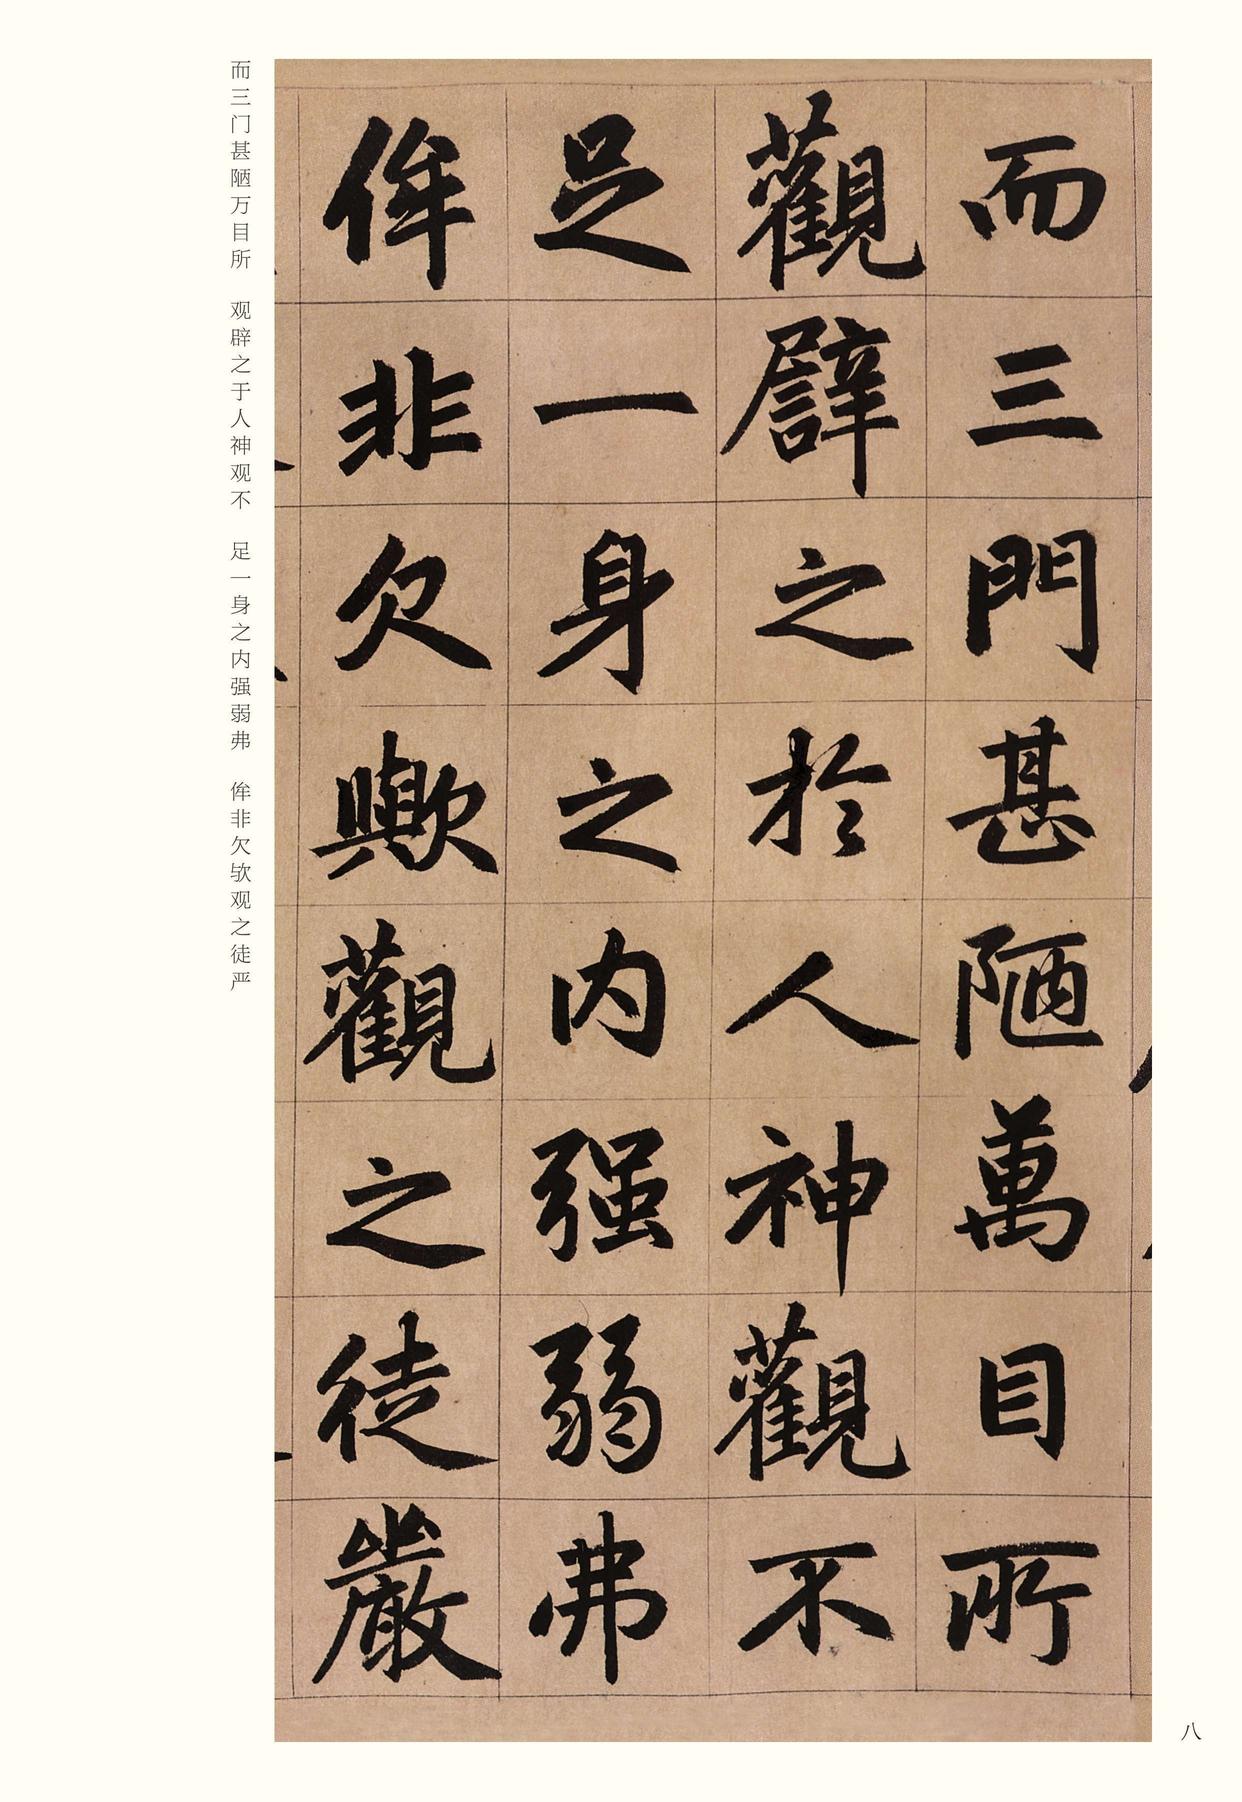 而三門甚陋萬目所
觀譬之於人神觀不
足一身之内强弱弗
侔非欠歟觀之徒嚴
而三门甚陋万目所　观辟之于人神观不　足一身之内强弱弗　侔非欠欤观之徒严
八